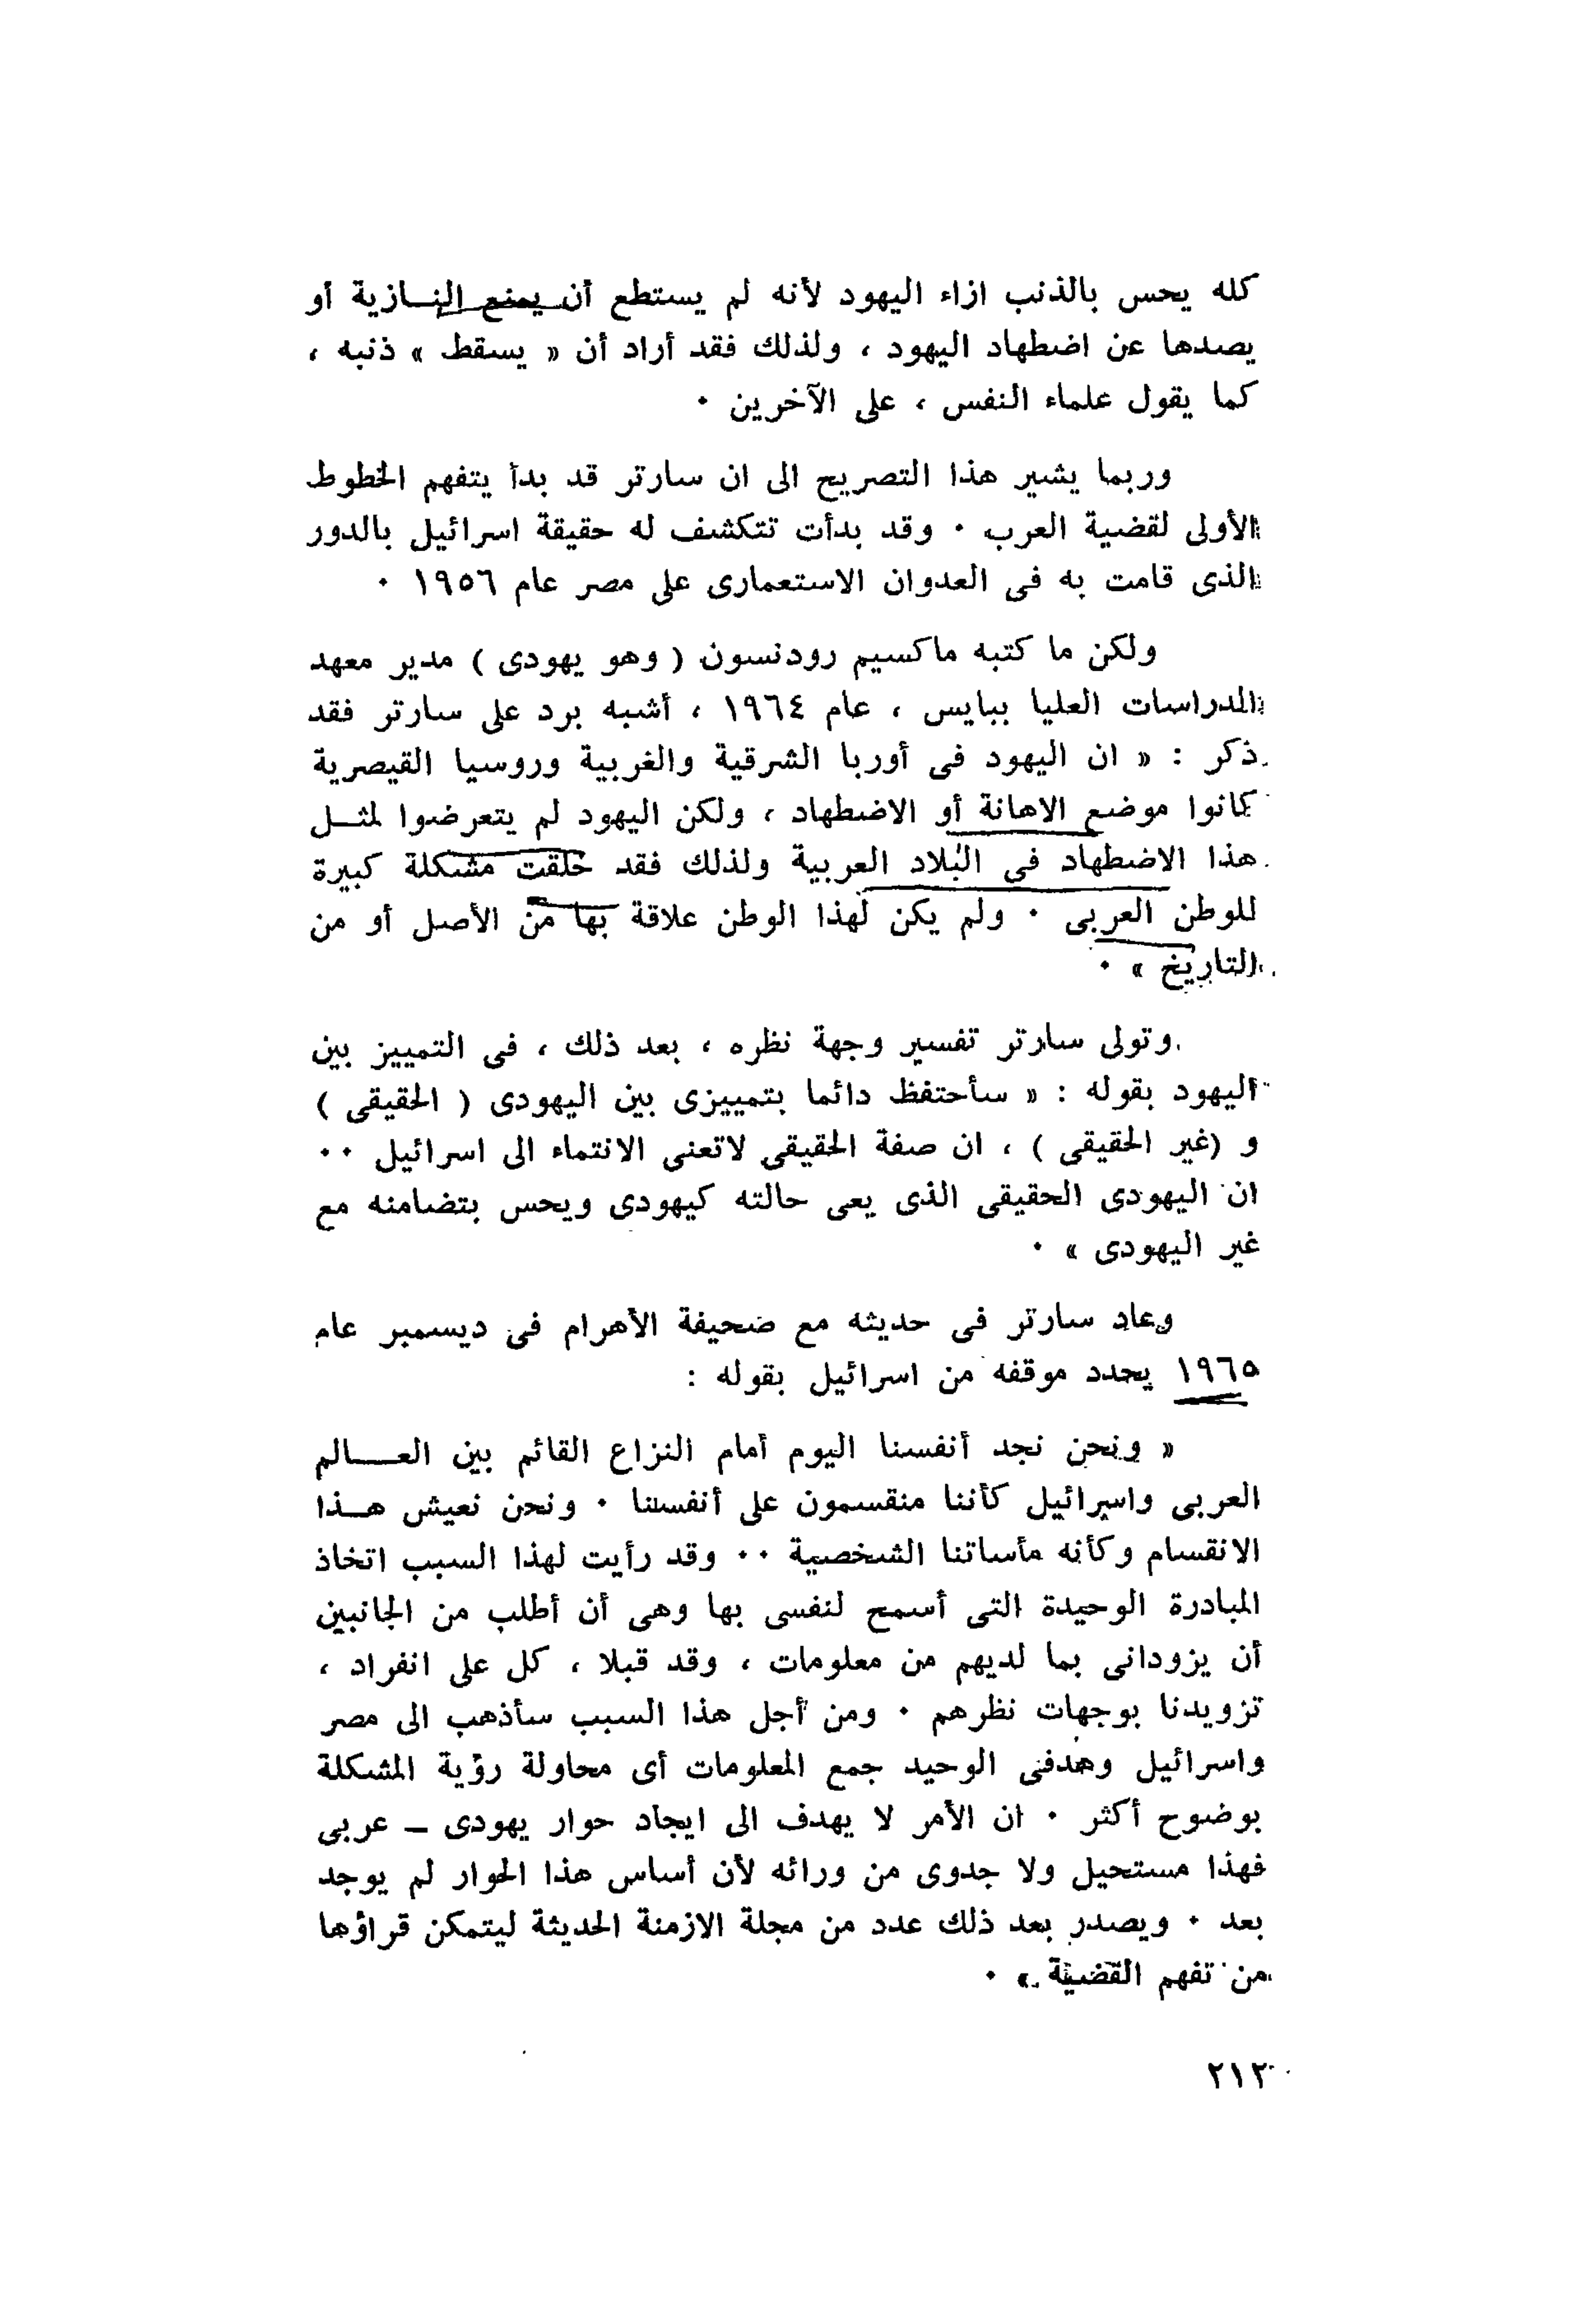 كله يحس بالذنب ازاء اليهود لأنه لم يستطع أن يمنع النازية أو
يصدها عن اضطهاد اليهود ، ولذلك فقد أراد أن « يسقط » ذنبه ،
كما يقول علماء النفس ، على الآخرين ٠
وربما يشير هذا التصريح الى ان سارتر قد بدأ يتفهم الخطوط
الأولى لقضية العرب ٠ وقد بدأت تتكشف له حقيقة اسرائيل بالدور
الذى قامت به فى العدوان الاستعمارى على مصر عام ١٩٥٦ ٠
ولكن ما كتبه ماكسيم رودنسون ( وهو يهودى ) مدير معهد
الدراسات العليا ببايس ، عام ١٩٦٤ ، أشبه برد على سارتر فقد
ذكر : « ان اليهود فى أوربا الشرقية والغربية وروسيا القيصرية
كانوا موضع الاهانة أو الاضطهاد ، ولكن اليهود لم يتعرضوا لمثل
هذا الاضطهاد فى البلاد العربية ولذلك فقد خلقت مشكلة كبيرة
للوطن العربى ٠ ولم يكن لهذا الوطن علاقة بها من الأصل أو من
التاريخ » ٠
وتولى سارتر تفسير وجهة نظره ، بعد ذلك ، فى التمييز بين
اليهود بقوله : « سأحتفظ دائما بتمييزى بين اليهودى ( الحقيقى )
و (غير الحقيقى ) ، ان صفة الحقيقى لاتعنى الانتماء الى اسرائيل ٠٠
ان اليهودى الحقيقى الذى يعى حالته كيهودى ويحس بتضامنه مع
غير اليهودى » ٠
وعاد سارتر فى حديثه مع صحيفة الأهرام فى ديسمبر عام
١٩٦٥ يحدد موقفه من اسرائيل بقوله :
« ونحن نجد أنفسنا اليوم أمام النزاع القائم بين العالم
العربى واسرائيل كأننا منقسمون على أنفسنا ٠ ونحن نعيش هذا
الانقسام وكأنه مأساتنا الشخصية ٠٠ وقد رأيت لهذا السبب اتخاذ
المبادرة الوحيدة التى أسمح لنفسى بها وهى أن أطلب من الجانبين
أن يزودانى بما لديهم من معلومات ، وقد قبلا ، كل على انفراد ،
تزويدنا بوجهات نظرهم ٠ ومن أجل هذا السبب سأذهب الى مصر
واسرائيل وهدفى الوحيد جمع المعلومات أى محاولة رؤية المشكلة
بوضوح أكثر ٠ ان الأمر لا يهدف الى ايجاد حوار يهودى – عربى
فهذا مستحيل ولا جدوى من ورائه لأن أساس هذا الحوار لم يوجد
بعد ٠ ويصدر بعد ذلك عدد من مجلة الازمنة الحديثة ليتمكن قراؤها
من تفهم القضية » ٠
٢١٢